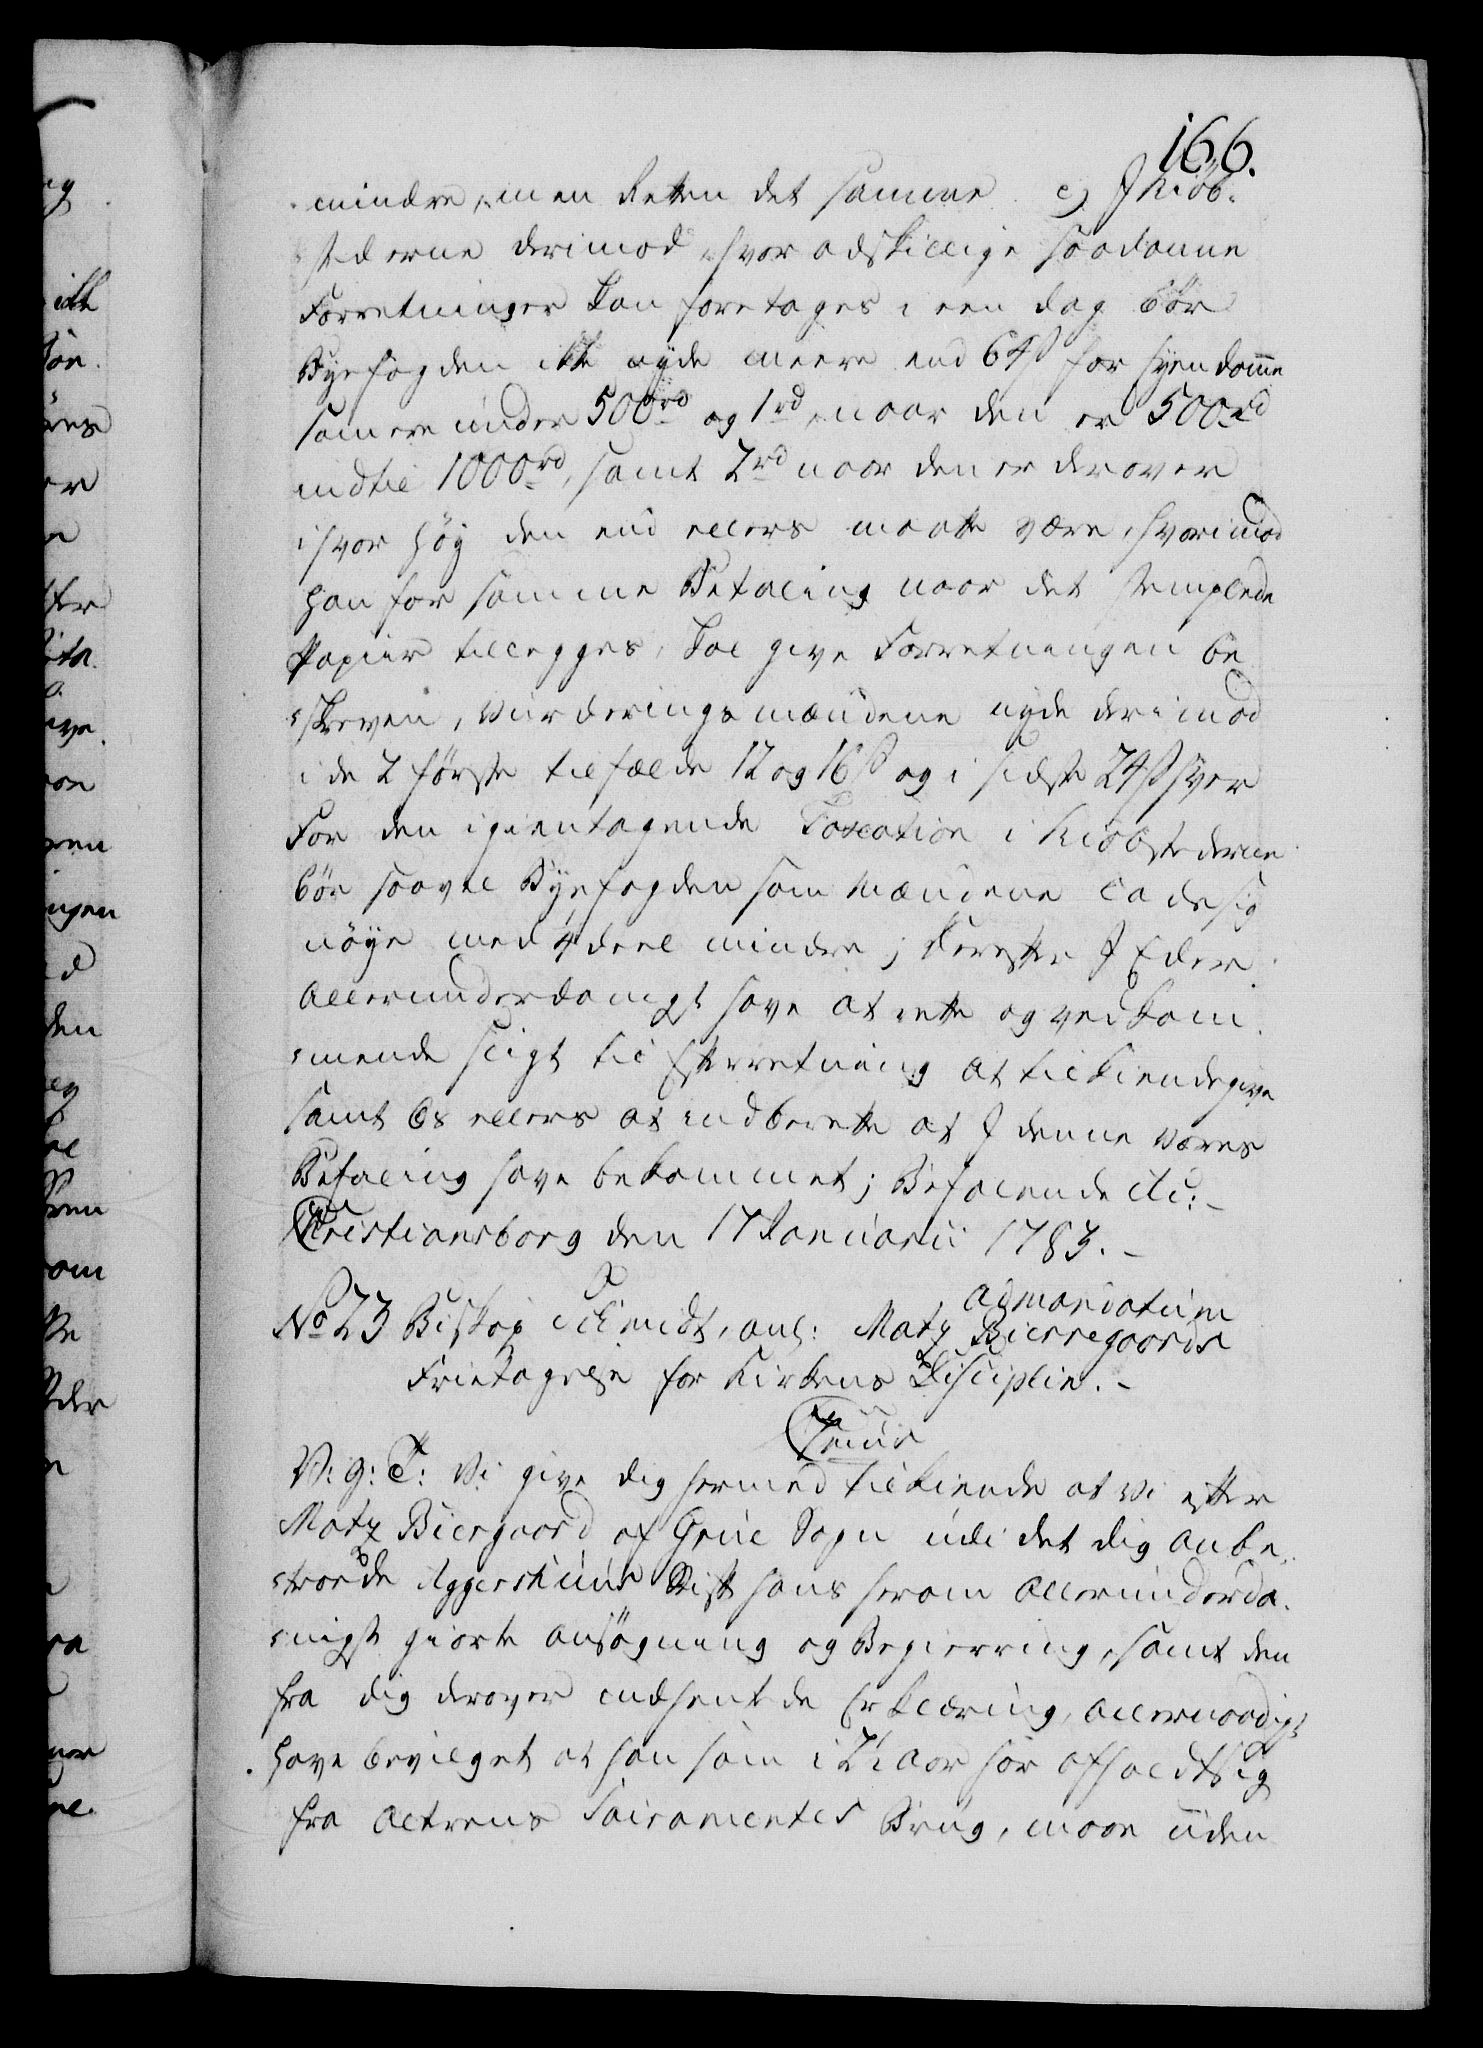 166.
mindre, men Retten det samme. c) I Kiöb-
stæderne derimod, hvor adskillige saadanne
Forretninger kan foretages i een dag bör
Byefogden ikke nyde meere end 64 s for Eyendomme
som ere under 500 rd og 1 rd, naar den er 500 rd
indtil 1000 rd, samt 2 rd naar den er derover
i hvor höy den end ellers maatte være, hvorimod
han for samme Betaling naar det stemplede
Papiir tillegges, skal give Forretningen be-
skreven, Vurderingsmændene nyde derimod
i de 2 förste tilfælde 12 og 16 s og i sidste 24 s hver
For den igientagende Taxation i Kiöbstæderne
bör saavel Byefogden som Mændene lade sig
nöye med 4 deel mindre; Derefter I Eder
Allerunderdanigst have at rette og vedkom-
mende sligt til Efterretning at tilkiendegive
samt Os ellers at indberette at I denne Vores
Befaling have bekommet; Befalende etc:
Christiansborg den 17 Januarii 1783.
ad mandatum
No 23 Biskop Schmidt, anl: Matz Bierregaards
Frietagelse for Kirkens Disciplin.
C: 7mus
V: G: T: Vi give dig hermed tilkiende at Vi efter
Matz Biergaard af Grue Sogn udi det dig anbe-
troede Aggershuus Stift hans herom allerunderda-
nigst giorte Ansögning og Begierring, samt den
fra dig derover indhentede Erklæring, allernaadigst
have bevilget at han som i 21 Aar har afholdt sig
fra Altrens Sacramentes Brug, maae uden